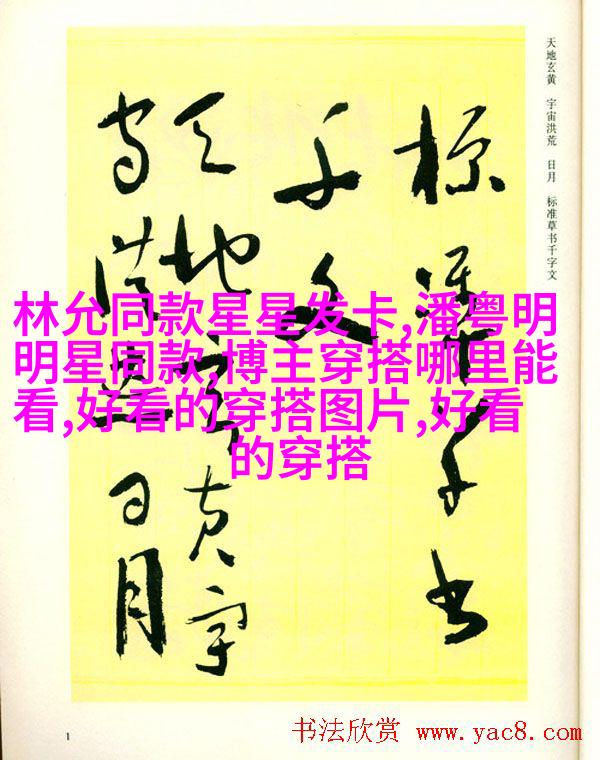 天地玄黄 宇宙洪荒 日月 标准草书千字文
標準草书
千文
天地玄黄宇
宙洪荒日月
林允同款星星发卡,潘粤明
明星同款,博主穿搭哪里能
看,好看的穿搭图片,好看
的穿搭
1
书法欣赏 www.yac8.com